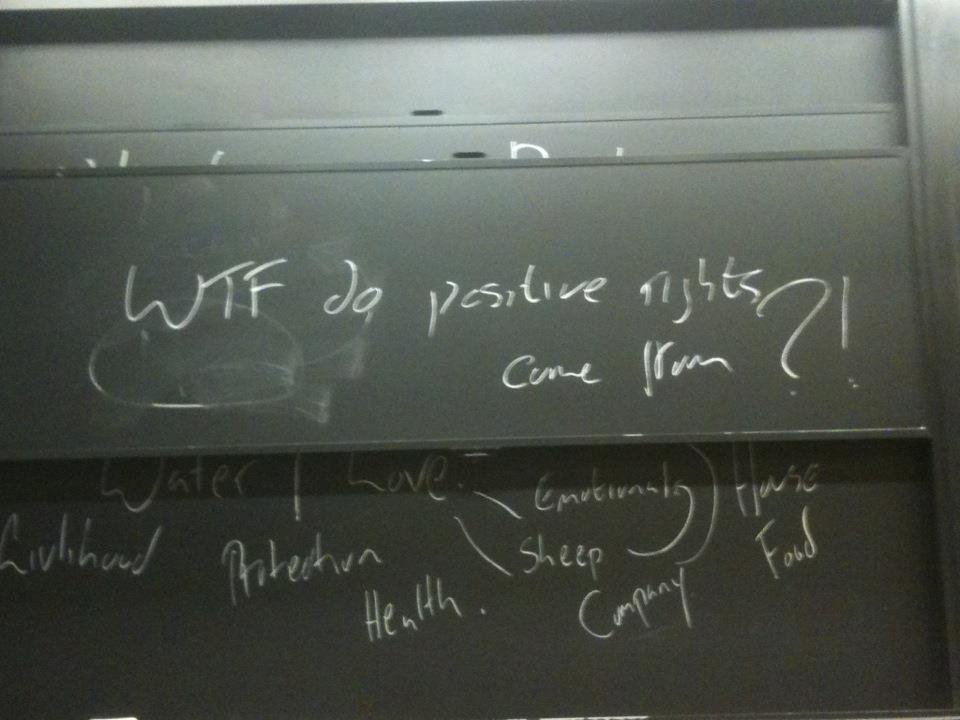 WTF do positive rights
come from ?!
Water Love: Emotionals House
Livlihood Protection Sheep Food
Health. Company